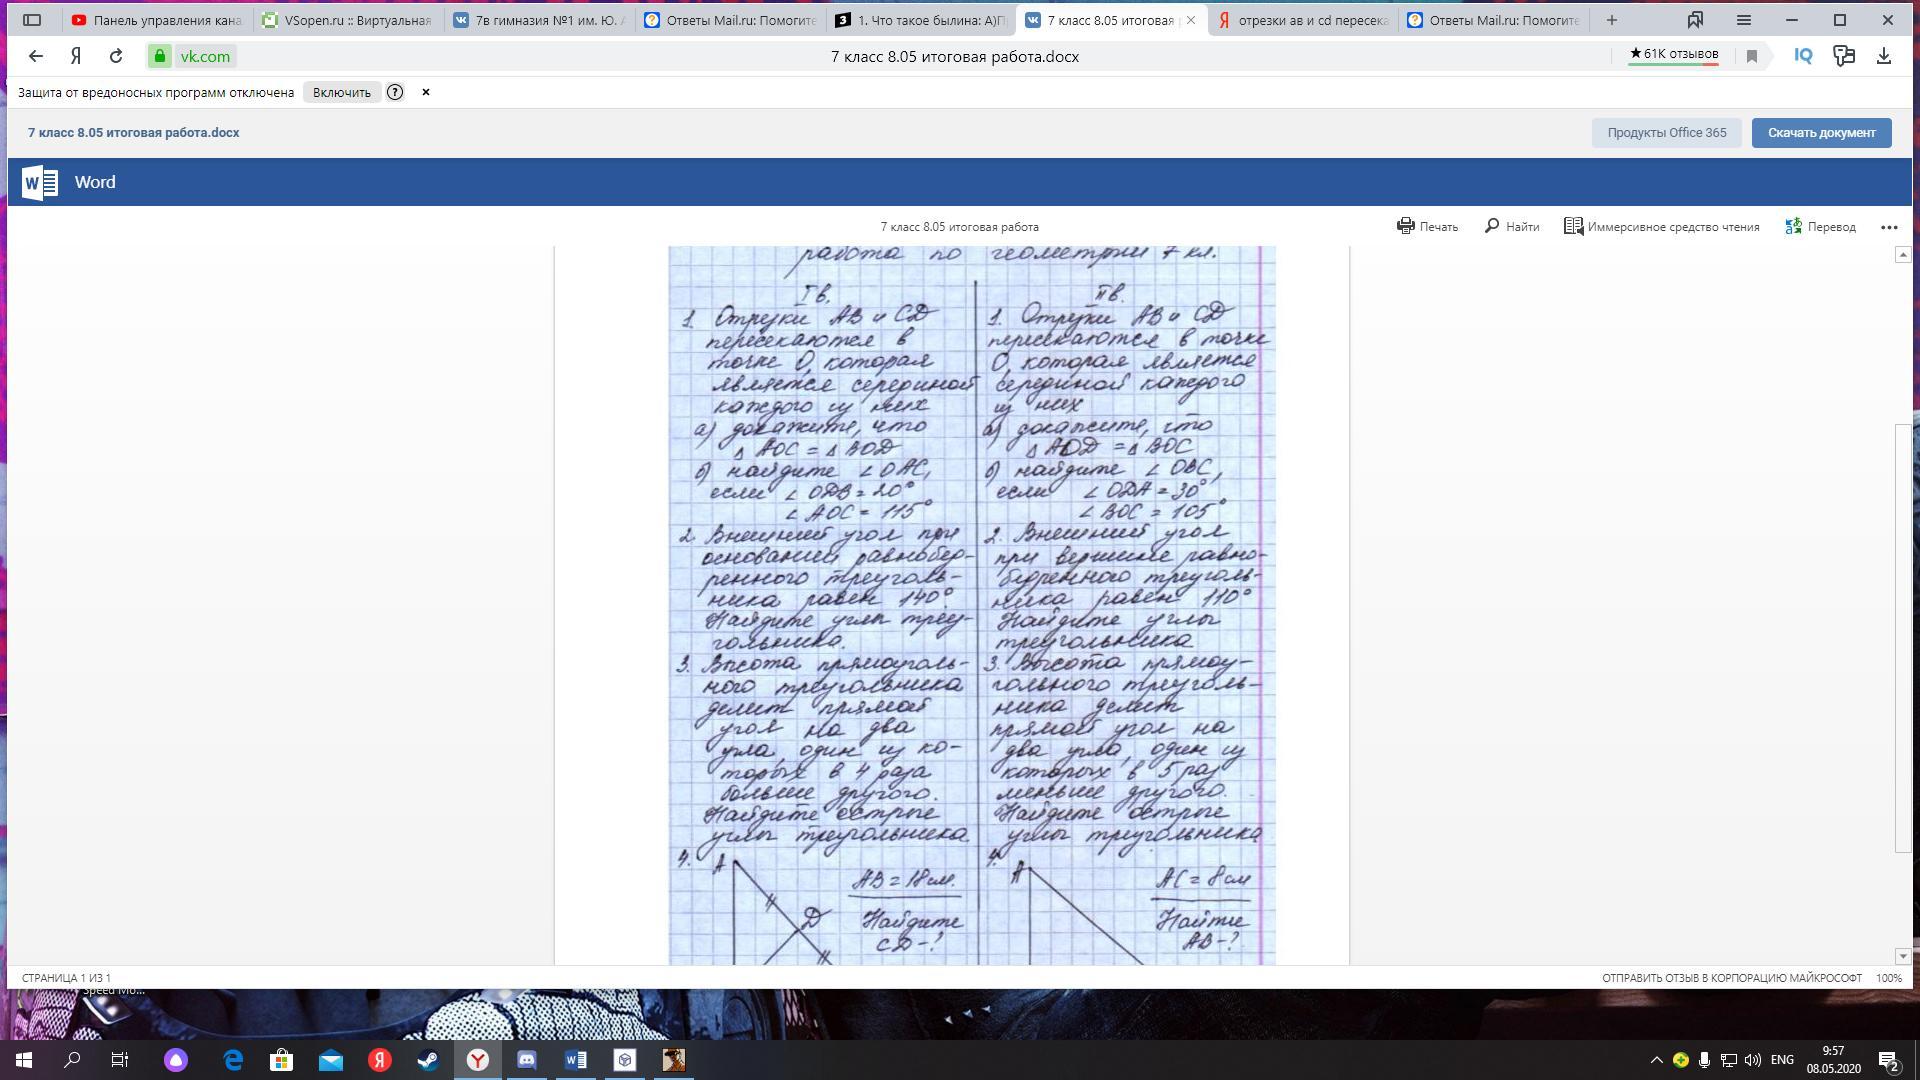 Панель управления кана
VSopen.ru :: Виртуальная
7в гимназия №1 им. Ю. А
Ответы Mail.ru: Помогите
1. Что такое былина: А)П
7 класс 8.05 итоговая р
отрезки ав и cd пересека
Ответы Mail.ru: Помогите
vk.com
7 класс 8.05 итоговая работа.docx
★ 61K отзывов
Защита от вредоносных программ отключена
Включить
7 класс 8.05 итоговая работа.docx
Продукты Office 365
Скачать документ
Word
7 класс 8.05 итоговая работа
Печать
Найти
Иммерсивное средство чтения
Перевод
работа по геометрии 7 кл.
I в.
1. Отрезки АВ и CD
пересекаются в
точке О, которая
является серединой
каждого из них
а) докажите, что
△ AOC = △ BOD
б) найдите ∠ OAC,
если ∠ ODB = 20°
∠ AOC = 115°
2. Внешний угол при
основании равнобед-
ренного треуголь-
ника равен 140°.
Найдите углы треу-
гольника.
3. Высота прямоуголь-
ного треугольника
делит прямой
угол на два
угла, один из ко-
торых в 4 раза
больше другого.
Найдите острые
углы треугольника.
4.
A
D
AB = 18 см.
Найдите
CD - ?
II в.
1. Отрезки АВ и CD
пересекаются в точке
О, которая является
серединой каждого
из них
а) докажите, что
△ AOD = △ BOC
б) найдите ∠ OBC,
если ∠ ODA = 30°,
∠ BOC = 105°
2. Внешний угол
при вершине равно-
бедренного треуголь-
ника равен 110°
Найдите углы
треугольника
3. Высота прямоу-
гольного треуголь-
ника делит
прямой угол на
два угла, один из
которых в 5 раз
меньше другого.
Найдите острые
углы треугольника.
4.
A
AC = 8 см
Найти
AB - ?
СТРАНИЦА 1 ИЗ 1
ОТПРАВИТЬ ОТЗЫВ В КОРПОРАЦИЮ МАЙКРОСОФТ
100%
Speed Mo...
ENG
9:57
08.05.2020
2